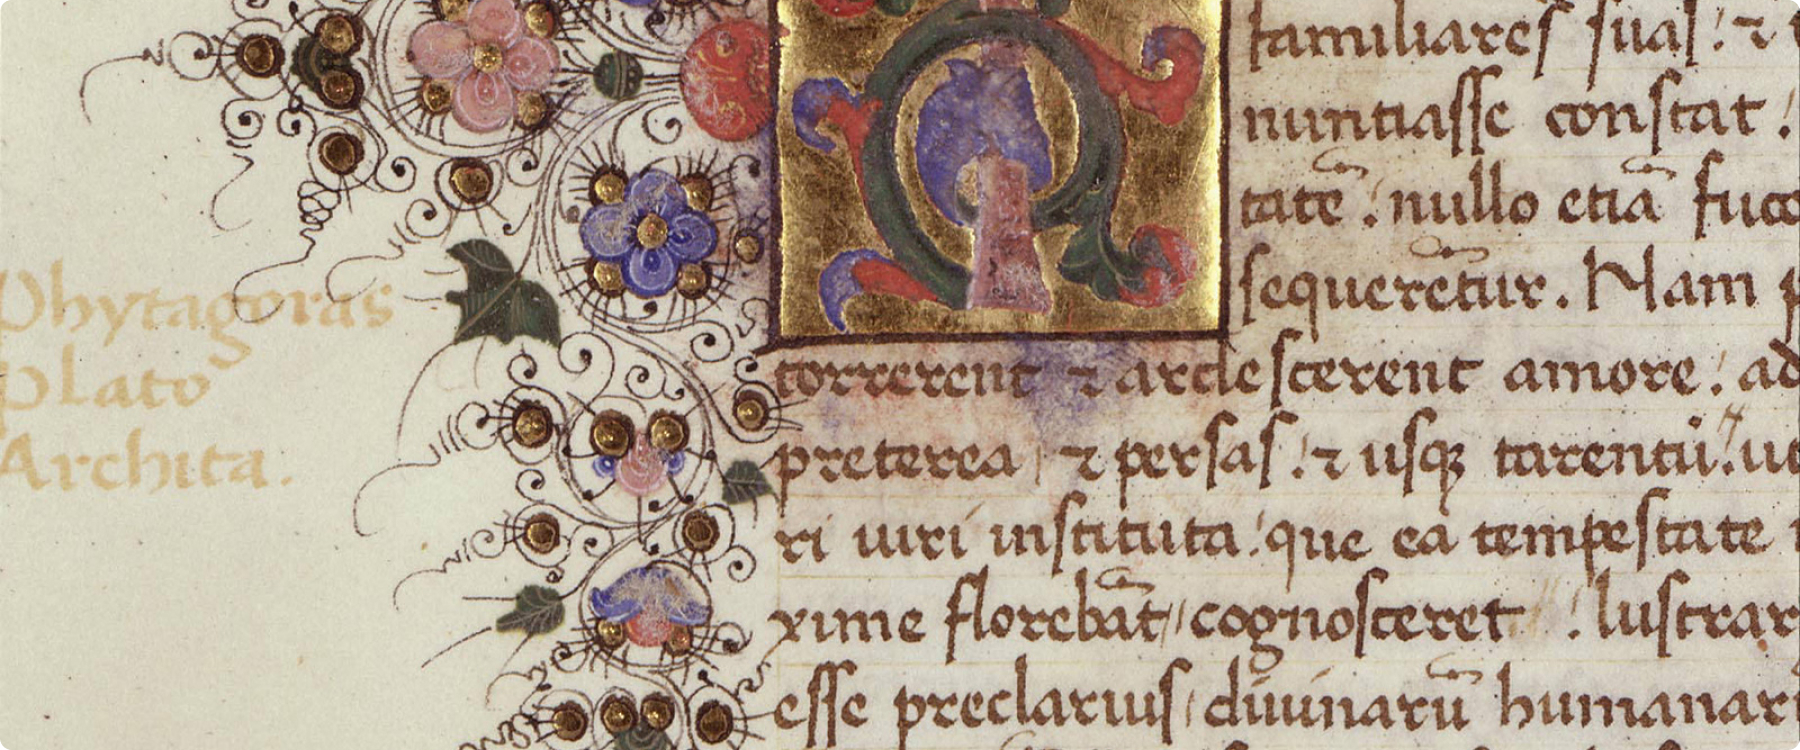 Phytagoras
Plato
Archita.
familiares suas: ⁊
nuntiasse constat.
tatē. nullo etiā fuco
sequerētur. Nam p
torrerent ⁊ ardescerent amore: ad
preterea, ⁊ persas: ⁊ usqꝫ tarentū: ue
ri uiri instituta: que ea tempestate
xime florebāt, cognosceret: lustrar
esse preclarius, diuinarū humanar